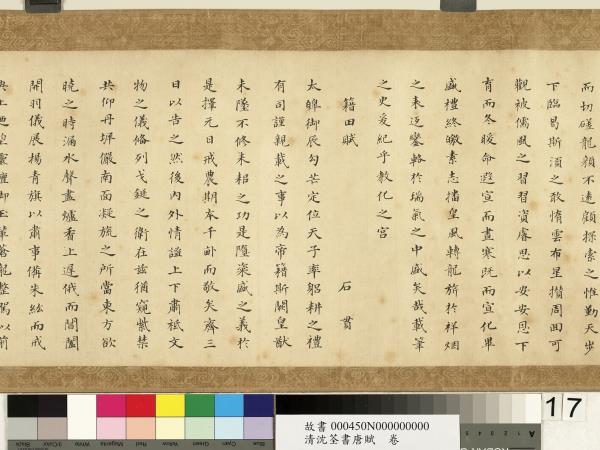 而切磋龍顏不遠顧探索之惟勤天步
下臨曷斯須之敢惰雲布星攢周田可
觀被儒風之習習資睿思以安安思下
育而冬暖命遐宣而晝寒既而宣化畢
盛禮終素志皇風轉龍旂於祥烟
之表返鑾輅於瑞氣之中盛矣哉載筆
之史爰紀乎教化之宮
籍田賦 石貫
太皞御辰勾芒定位天子率躬耕之禮
有司謹親載之事以為帝籍斯闢皇猷
未墜不修耒耜之功是隳粢盛之義於
是擇元日戒農期本千畝而敬矣齊三
日以告之然後內外情謐上下肅祗文
物之儀脩列戈鋋之衛在茲猶窺紫禁
共仰丹墀儼南面凝旒之所當東方欲
曉之時漏水聲盡爐香上遲俄而閶闔
開羽儀展揚青旗以肅事備朱紘而戒
蒼龍整駕以前
17
Black
3/Color
White
Magenta
Red
Yellow
Green
Cyan
Blue
A
故書 000450N000000000
清沈荃書唐賦 卷